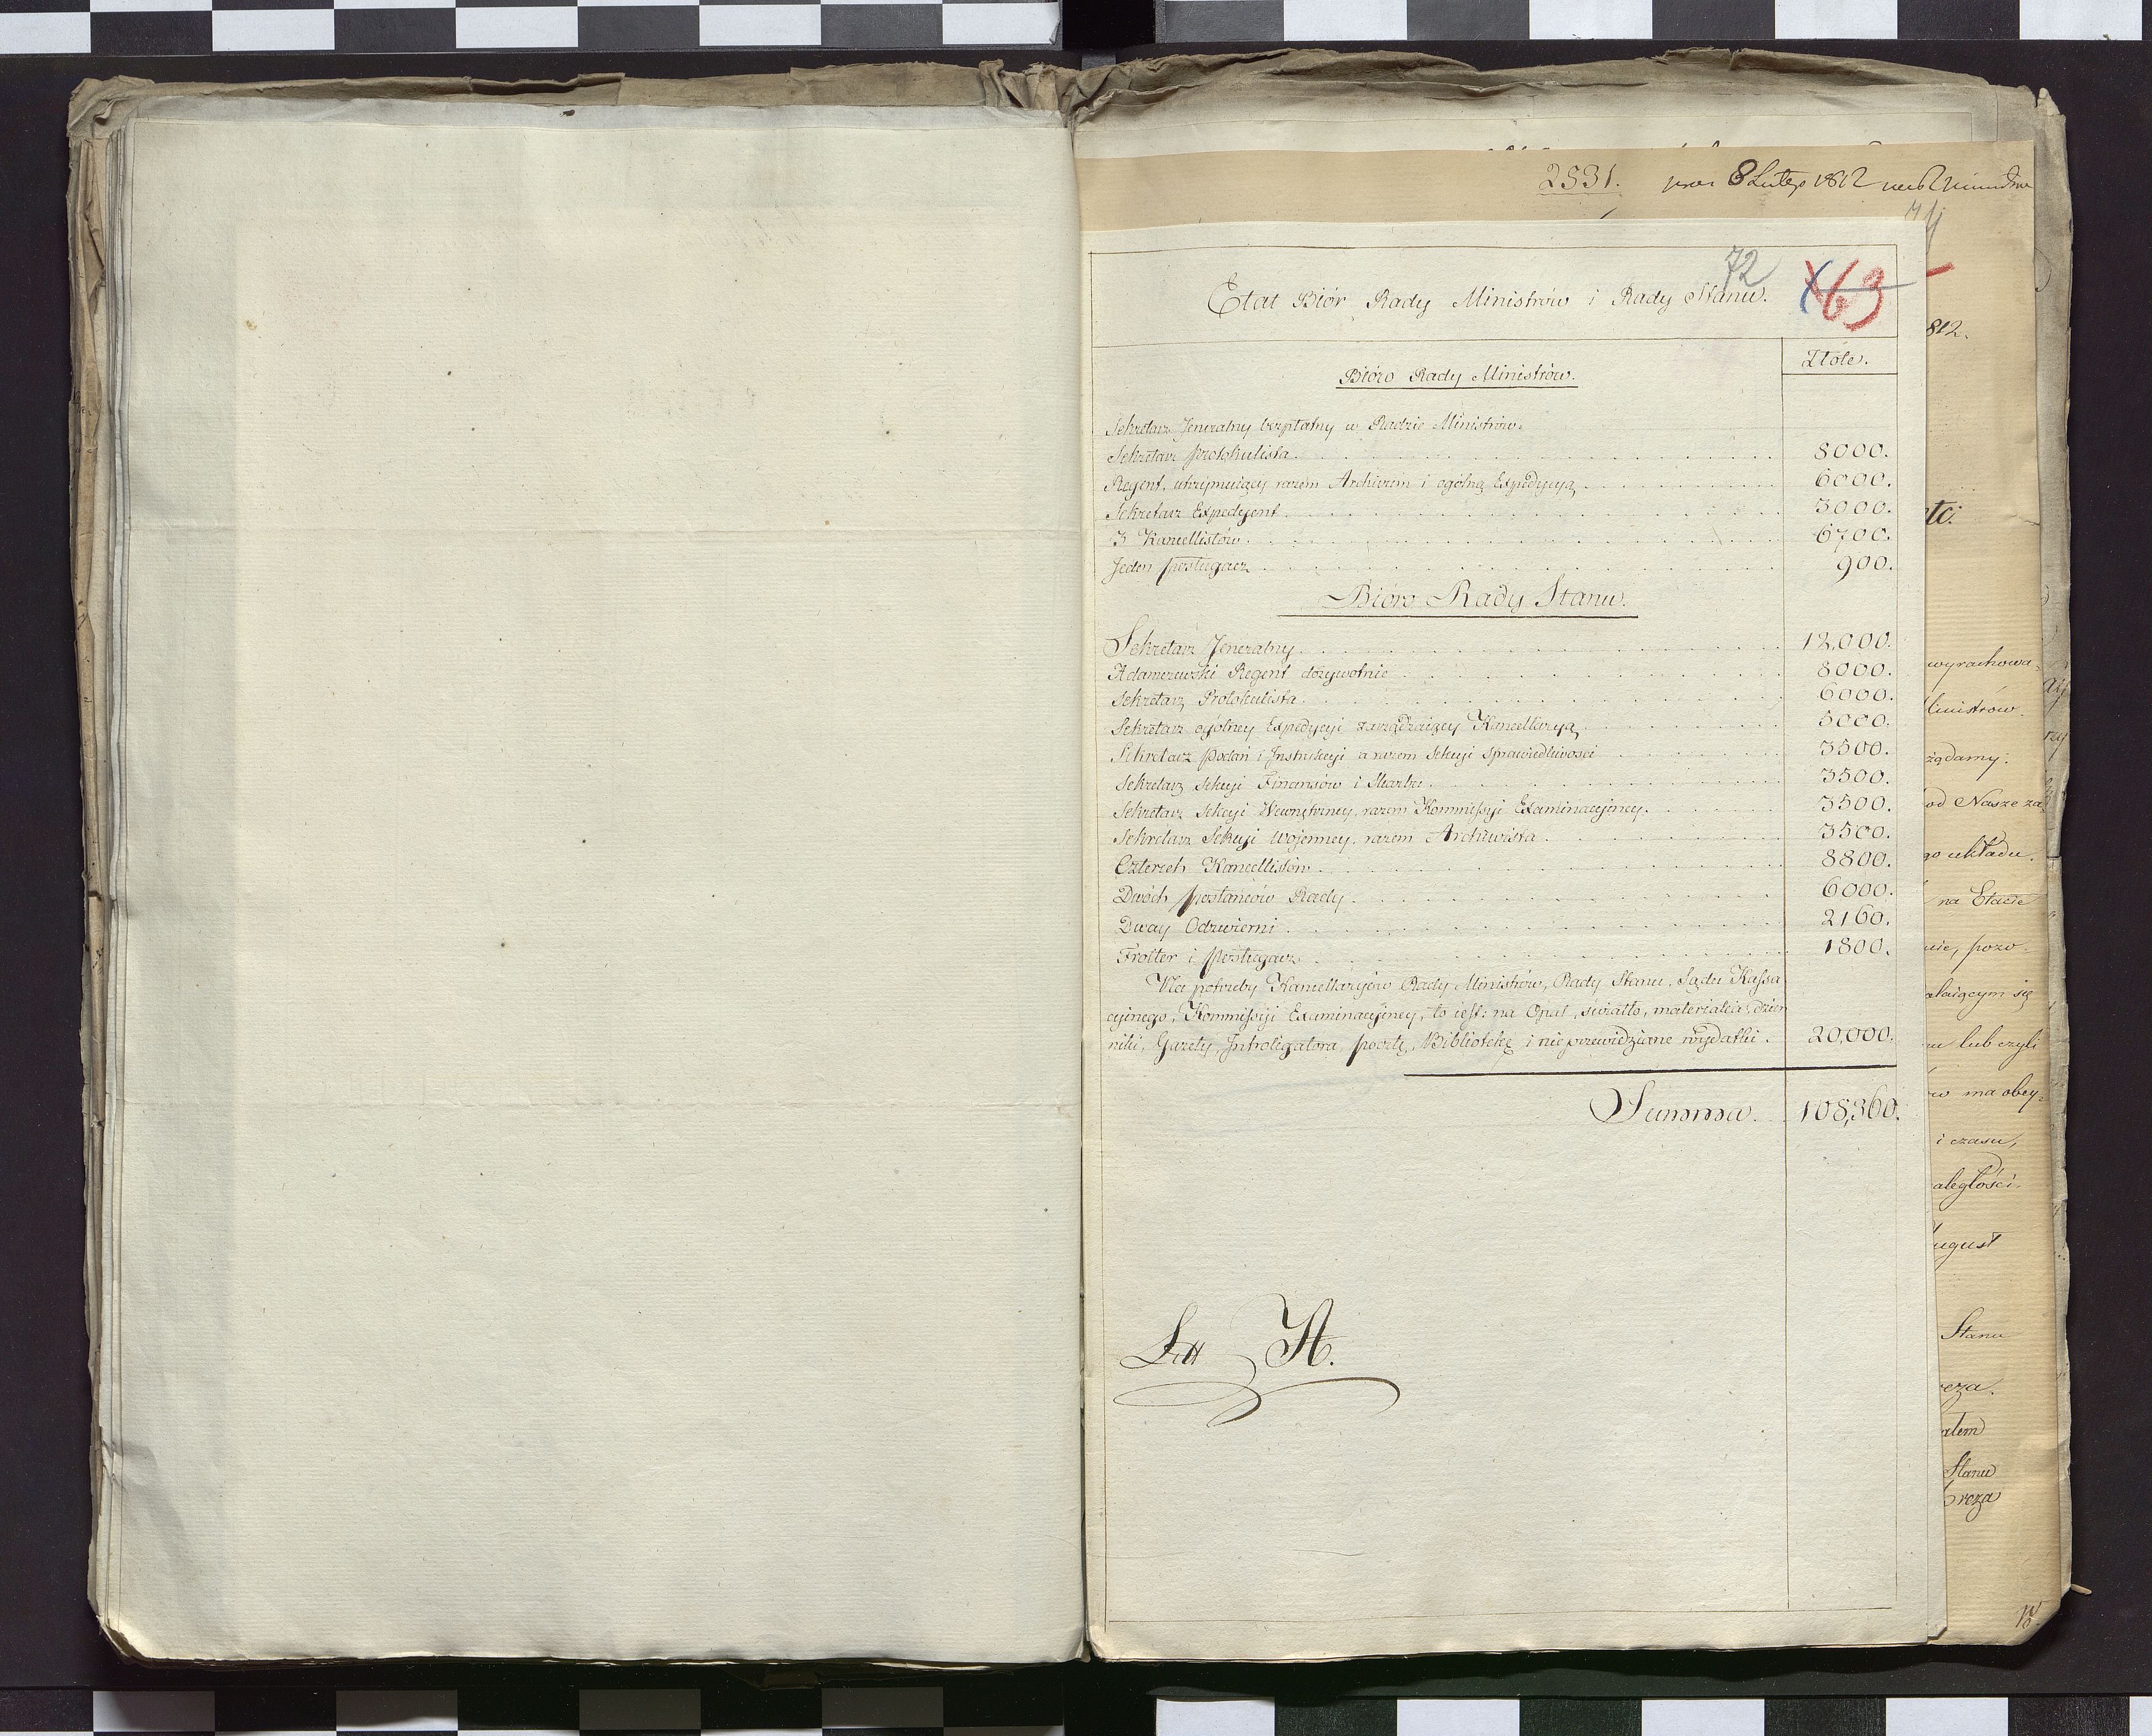 2531. 8 Lutego 1812
72 63
Etat Biór Rady Ministrów i Rady Stanu.
Złote.
Bióro Rady Ministrów.
Sekretarz Jeneralny bezpłatny w Radzie Ministrów.
Sekretarz protokulista. 8000.
Regent, utrzymuiący razem Archiwum i ogólną Expedycyą 6000.
Sekretarz Expedyent. 3000.
3 Kancellistów. 6700.
Jeden posługacz 900.
Bióro Rady Stanu.
Sekretarz Jeneralny. 12,000.
Adamczewski Regent dożywotnie 8000.
Sekretarz Protokulista. 6000.
Sekretarz ogólney Expedycyi zarządzaiący Kancellaryą 5000.
Sekretarz Podań i Instrukcyi a razem Sekcyi Sprawiedliwości 3500.
Sekretarz Sekcyi Finansów i Skarbu. 3500.
Sekretarz Sekcyi Wewnętrzney, razem Kommissyi Examinacyjney. 3500.
Sekretarz Sekcyi wojenney, razem Archiwista. 3500.
Czterech Kancellistów. 8800.
Dwóch posłańców Rady. 6000.
Dway Odzwierni. 2160.
Frotter i posługacz 1800.
Na potrzeby Kancellaryów Rady Ministrów, Rady Stanu, Sądu Kassa
cyjnego, Kommissyi Examinacyjney, to iest: na Opał, swiatło, materiałia, dzien
niki, Gazety, Introligatora, pocztę, Bibliotekę i nieprzewidziane wydatki. 20,000.
Summa. 108,360.
Litt A.
812.
etc:
wyrachowa-
Ministrów
żądamy:
od Nasze za
go układu.
na Etacie
nie, pozo-
alaiącym się
lub czyli
ma obey-
i czasu,
aległości.
August
Stanu
reza.
atem
Stanu
Breza